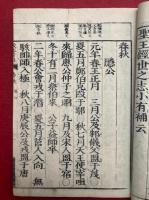 聖王經世之志小有補云
春秋
隱公
元年春王正月　三月公及邾儀父盟于蔑
夏五月鄭伯克段于鄢　秋七月天王使宰咺
來歸惠公仲子之賵　九月及宋人盟于宿
冬十有二月祭伯來　公子益師卒
二年春公會戎于潛　夏五月莒人入向　無
駭帥師入極　秋八月庚辰公及戎盟于唐